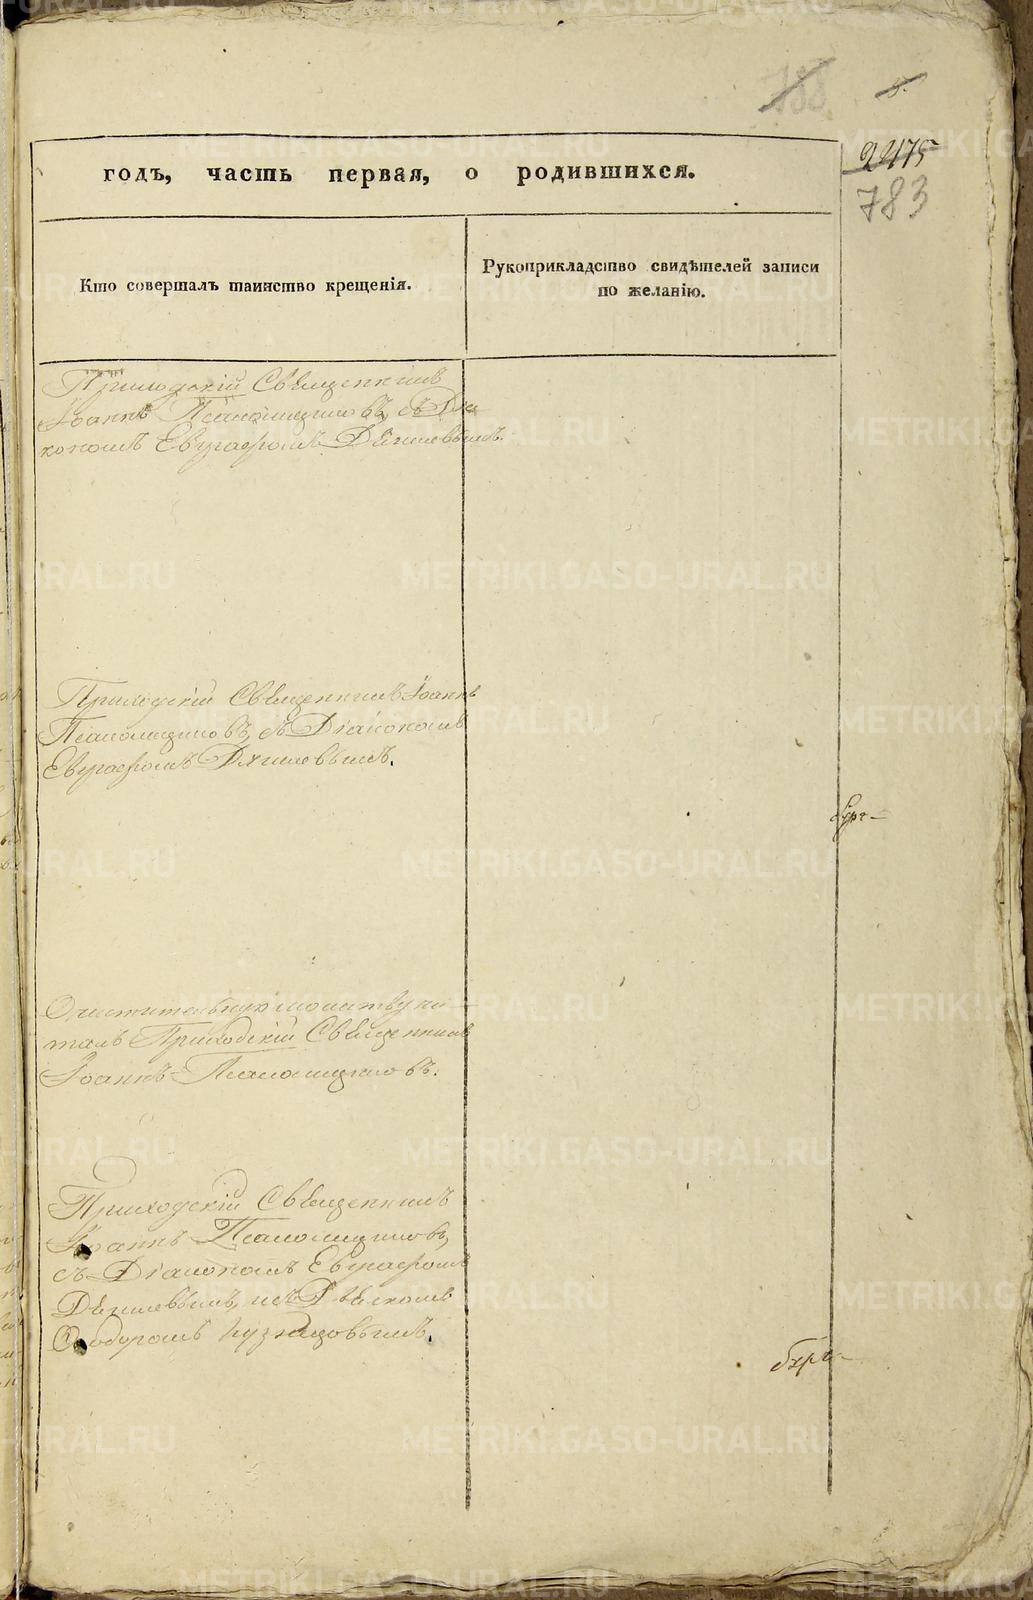 788
5.
2475
783
годъ, часть первая, о родившихся.
Кто совершалъ таинство крещенія.
Рукоприкладство свидѣтелей записи
по желанію.
Приходскій Священникъ
Іоаннъ Псаломщиковъ, съ Діа
кономъ Евграфомъ
Приходскій Священникъ Іоаннъ
Псаломщиковъ, съ Діакономъ
Евграфомъ
Очистительную молитву чи
талъ Приходскій Священникъ
Іоаннъ Псаломщиковъ.
Приходскій Священникъ
Іоаннъ Псаломщиковъ,
съ Діакономъ Евграфомъ
Ѳеодоромъ Кузнецовымъ.
METRIKI.GASO-URAL.RU